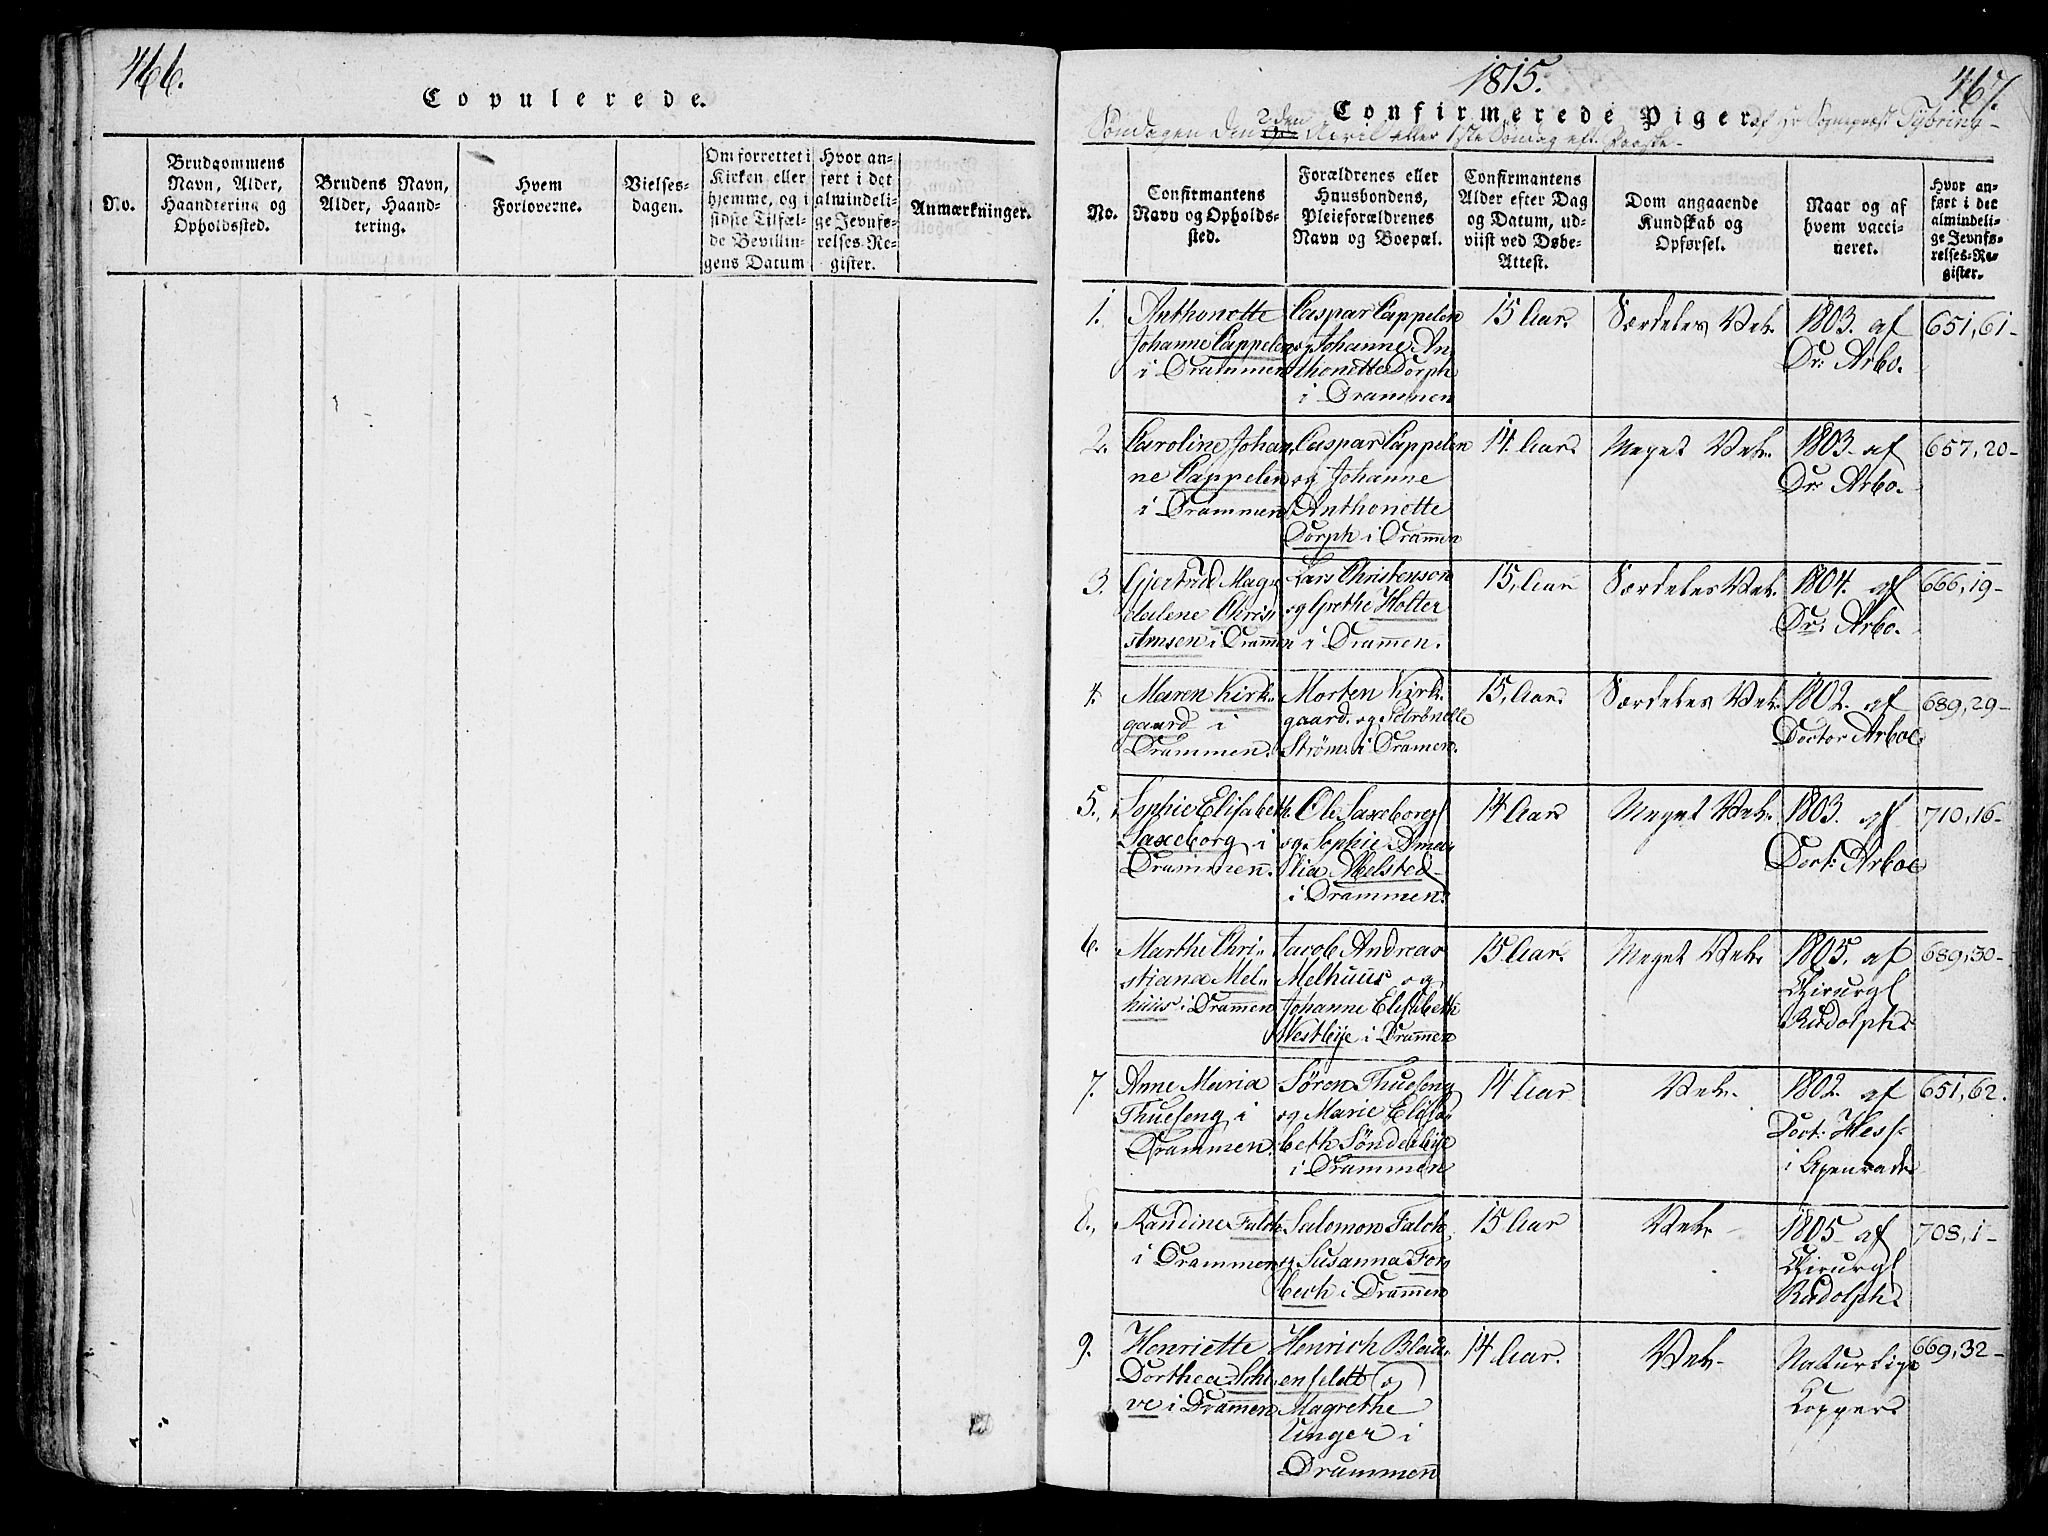 466.
Copulerede.
No.
Brudgommens
Navn, Alder,
Haandtering og
Opholdssted.
Brudens Navn,
Alder, Haand-
tering.
Hvem
Forloverne.
Vielses-
dagen.
Om forrettet i
Kirken eller
hjemme, og i
sidste Tilfæl-
de Bevillin-
gens Datum
Hvor an-
ført i det
almindeli-
ge Jevnfø-
relses-Re-
gister.
Anmærkninger.
1815.
467.
Confirmerede Piger
af Hr Sognepræst Tybring-
Søndagen den 2den April eller 1ste Søndag eft. Paaske-
No.
Confirmantens
Navn og Opholds-
sted.
Forældrenes eller
Huusbondens,
Pleieforældrenes
Navn og Boepæl.
Confirmantens
Alder efter Dag
og Datum, ud-
viist ved Døbe-
Attest.
Dom angaaende
Kundskab og
Opførsel.
Naar og af
hvem vacci-
neret.
Hvor an-
ført i det
almindeli-
ge Jevnfø-
relses-Re-
gister.
1.
Anthonette
Johanne Cappelen
i Drammen
Caspar Cappelen
og Johanne An
thonette Dorph
i Drammen
15 Aar.
Særdeles Vel.
1803. af
Dr: Arbo.
651, 61-
2.
Caroline Johan
ne Cappelen
i Drammen
Caspar Cappelen
og Johanne
Anthonette
Dorph i Dramen
14. Aar.
Meget Vel.
1803- af
Dr: Arbo.
657, 20-
3.
Gjertrud Mag
dalene Chris
stensen i Dramen
Lars Christensen
og Grethe Holter
i Dramen.
15, Aar
Særdeles Vel.
1804. af
Dr: Arbo.
666, 19-
4.
Maren Kirk-
gaard i
Drammen.
Morten Kirk-
gaard. og Petronelle
Strøm. i Dramen.
15, Aar.
Særdeles Vel.
1802. af
Doctor Arboe
689, 29-
5.
Sophie Elisabeth
Saxeborg i
Drammen.
Ole Saxeborg
og Sophie Ame-
lia Abelsted
i Drammen
14 Aar
Meget Vel.
1803. af
Doct: Arboe
710, 16-
6.
Marthe Chri-
stiana Mel-
huus i Dramen
Jacob Andreas
Melhuus og
Johanne Elisabeth
Westbye i Dramen
15 Aar.
Meget Vel.
1805. af
Chirurg
Rudolph.
689, 30-
7.
Anne Maria
Thueseng i
Drammen
Søren Thueseng
og Marie Elisa
beth Sønderbye
i Drammen
14 Aar
Vel.
1802. af
Doct: Hess
i Apenrade
651, 62.
8.
Randine Falch
i Drammen
Salomon Falch
og Susanna For
bech i Dramen
15 Aar
Vel.
1805- af
Chirurg
Rudolph.
708, 1-
9.
Henriette
Dorthea Schi
ve i Dramen
Henrich Blau-
enfeldt og
Magrethe
Unger i
Drammen
14 Aar.
Vel-
Naturlige
Kopper.
669, 32-